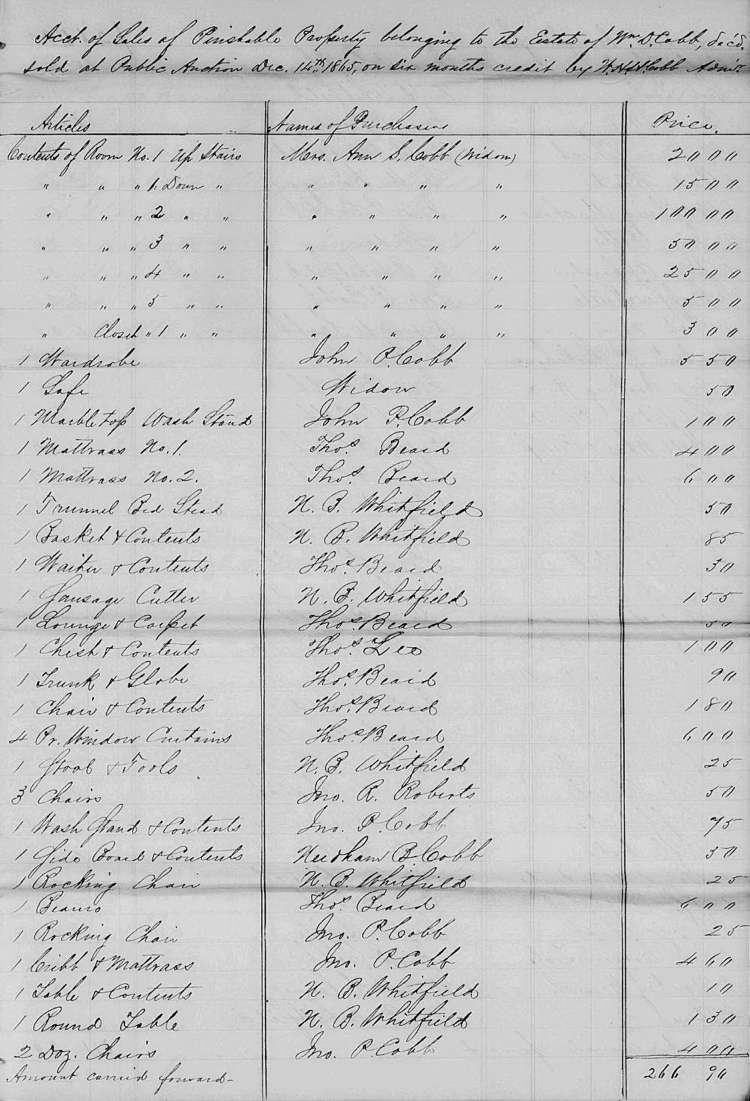 Acct. of Sales of Perishable Property belonging to the Estate of Wm. D. Cobb, dec'd.
sold at Public Auction Dec. 14th 1865, on six months credit by W.H.H. Cobb Admr.
Articles Names of Purchasers Price.
Contents of Room No. 1 Up Stairs Mrs. Ann S. Cobb (Widow) 20 00
" " " 1 Down " " " " " 15 00
" " " 2 " " " " " " 100 00
" " " 3 " " " " " " 50 00
" " " 4 " " " " " " 25 00
" " " 5 " " " " " " 5 00
" Closet " 1 " " " " " " 3 00
1 Wardrobe John P. Cobb 5 50
1 Safe Widow 50
1 Marble top Wash Stand John P. Cobb 1 00
1 Mattrass No. 1. Thos. Beard 4 00
1 Mattrass No. 2. Thos. Beard 6 00
1 Trunnel Bed Stead N. B. Whitfield 50
1 Basket & Contents N. B. Whitfield 85
1 Waiter & Contents Thos. Beard 30
1 Sausage Cutter N. B. Whitfield 1 55
1 Lounge & Carpet Thos. Beard 50
1 Chest & Contents Thos. Lee 1 00
1 Trunk & Globe Thos. Beard 90
1 Chair & Contents Thos. Beard 1 80
4 Pr. Window Curtains Thos. Beard 6 00
1 Stool & Tools N. B. Whitfield 25
3 Chairs Jno. R. Roberts 50
1 Wash Stand & Contents Jno. P. Cobb 75
1 Side Board & Contents Needham B. Cobb 30
1 Rocking Chair N. B. Whitfield 25
1 Beauro Thos. Beard 6 00
1 Rocking Chair Jno. P. Cobb 25
1 Cribb & Mattrass Jno. P. Cobb 4 60
1 Table & Contents N. B. Whitfield 10
1 Round Table N. B. Whitfield 1 30
2 Doz. Chairs Jno. P. Cobb 4 00
Amount carried forward- 266 90